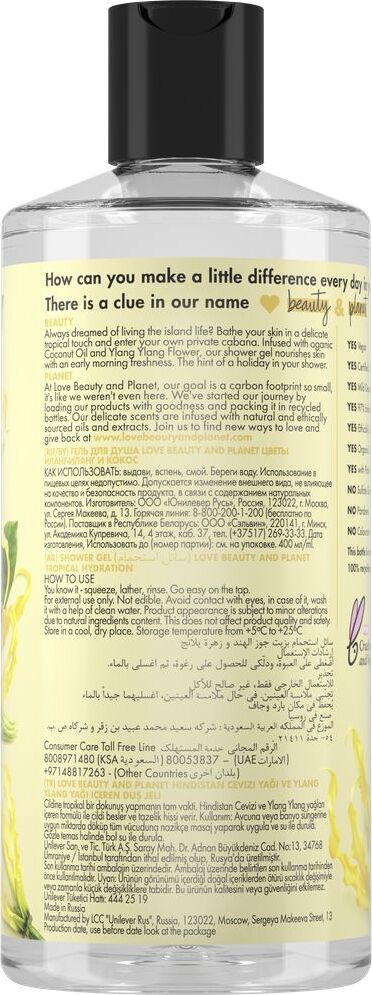 How can you make a little difference every day in y
There is a clue in our name beauty & planet
BEAUTY
Always dreamed of living the island life? Bathe your skin in a delicate
tropical touch and enter your own private cabana. Infused with oganic
Coconut Oil and Ylang Ylang Flower, our shower gel nourishes skin
with an early morning freshness. The hint of a holiday in your shower.
PLANET
At Love Beauty and Planet, our goal is a carbon footprint so small,
it's like we weren't even here. We've started our journey by
loading our products with goodness and packing it in recycled
bottles. Our delicate scents are infused with natural and ethically
sourced oils and extracts. Join us to find new ways to love and
give back at www.lovebeautyandplanet.com
(RU/BY) ГЕЛЬ ДЛЯ ДУША LOVE BEAUTY AND PLANET ЦВЕТЫ
ИЛАНГ-ИЛАНГ И КОКОС
КАК ИСПОЛЬЗОВАТЬ: выдави, вспень, смой. Береги воду. Использование в
пищевых целях недопустимо. Допускается изменение внешнего вида, не влияющее
на качество и безопасность продукта, в связи с содержанием натуральных
компонентов. Изготовитель: ООО «Юнилевер Русь», Россия, 123022, г. Москва,
ул. Сергея Макеева, д. 13. Горячая линия: 8-800-200-1-200 (бесплатно по
России). Поставщик в Республике Беларусь: ООО «Сэльвин», 220141, г. Минск,
ул. Академика Купревича, 14, 4 этаж, каб. 37, тел. (+37517) 269-33-33. Дата
изготовления, Использовать до (номер партии): см. на упаковке. 400 мл/ml.
(AR) SHOWER GEL (سائل استحمام) LOVE BEAUTY AND PLANET
TROPICAL HYDRATION
HOW TO USE
You know it - squeeze, lather, rinse. Go easy on the tap.
For external use only. Not edible. Avoid contact with eyes, in case of it, wash
it with help of clean water. Product appearance is subject to minor alterations
due to natural ingredients content. This does not affect product quality and safety.
Store in a cool, dry place. Storage temperature from +5ºC to +25ºC
سائل استحمام بزيت جوز الهند و زهرة يلانج
إرشادات الإستعمال
اضغطي على العبوة، ودلّكي للحصول على رغوة، ثم اغسلي بالماء.
تحذير
للاستعمال الخارجي فقط، غير صالح للأكل
تجنبي ملامسة العينين، في حال ملامسة العينين، اغسليهما جيداً بالماء
يحفظ في مكان بارد وجاف
صنع في روسيا
الموزع في المملكة العربية السعودية : شركة سعيد محمد عبيد بن زقر و شركاه ص. ب.
٥٤- جدة ٢١٤١١
Consumer Care Toll Free Line الرقم المجاني لخدمة المستهلك
8008971480 (KSA السعودية) 80053837 – (UAE الامارات)
+97148817263 - (Other Countries بلدان اخرى)
(TR) LOVE BEAUTY AND PLANET HINDISTAN CEVİZİ YAĞI VE YLANG
YLANG YAĞI İÇEREN DUŞ JELİ
Cildine tropikal bir dokunuş yapmanın tam vakti. Hindistan Cevizi ve Ylang Ylang yağları
içeren formülü ile cildi besler ve tazelik hissi verir. Kullanım: Avcuna veya banyo süngerine
uygun miktarda döküp tüm vücuduna nazikçe masaj yaparak uygula ve su ile durula.
Gözle temas halinde bol su ile durula.
Unilever San. ve Tic. Türk A.Ş. Saray Mah. Dr. Adnan Büyükdeniz Cad. No:13, 34768
Ümraniye / İstanbul tarafından ithal edilmiş olup, Rusya'da üretilmiştir.
Son kullanma tarihi ambalajın üzerindedir. Ambalaj üzerinde belirtilen son kullanma tarihinden
önce kullanılmalıdır. Uyarı: Ürünün görünümü içerdiği doğal içeriklerden ötürü sıcaklık değişimiyle
veya zamanla küçük değişikliklere tabidir. Bu ürünün kalitesini veya güvenliğini etkilemez.
Unilever Tüketici Hattı: 444 25 19
Made in Russia
Manufactured by LCC "Unilever Rus", Russia, 123022, Moscow, Sergeya Makeeva Street, 13
Production date, use before date look at the package
YES Vegan
YES Certified
YES
YES 97%
YES
YES
YES with
NO
NO
NO
This bottle
100% recyc